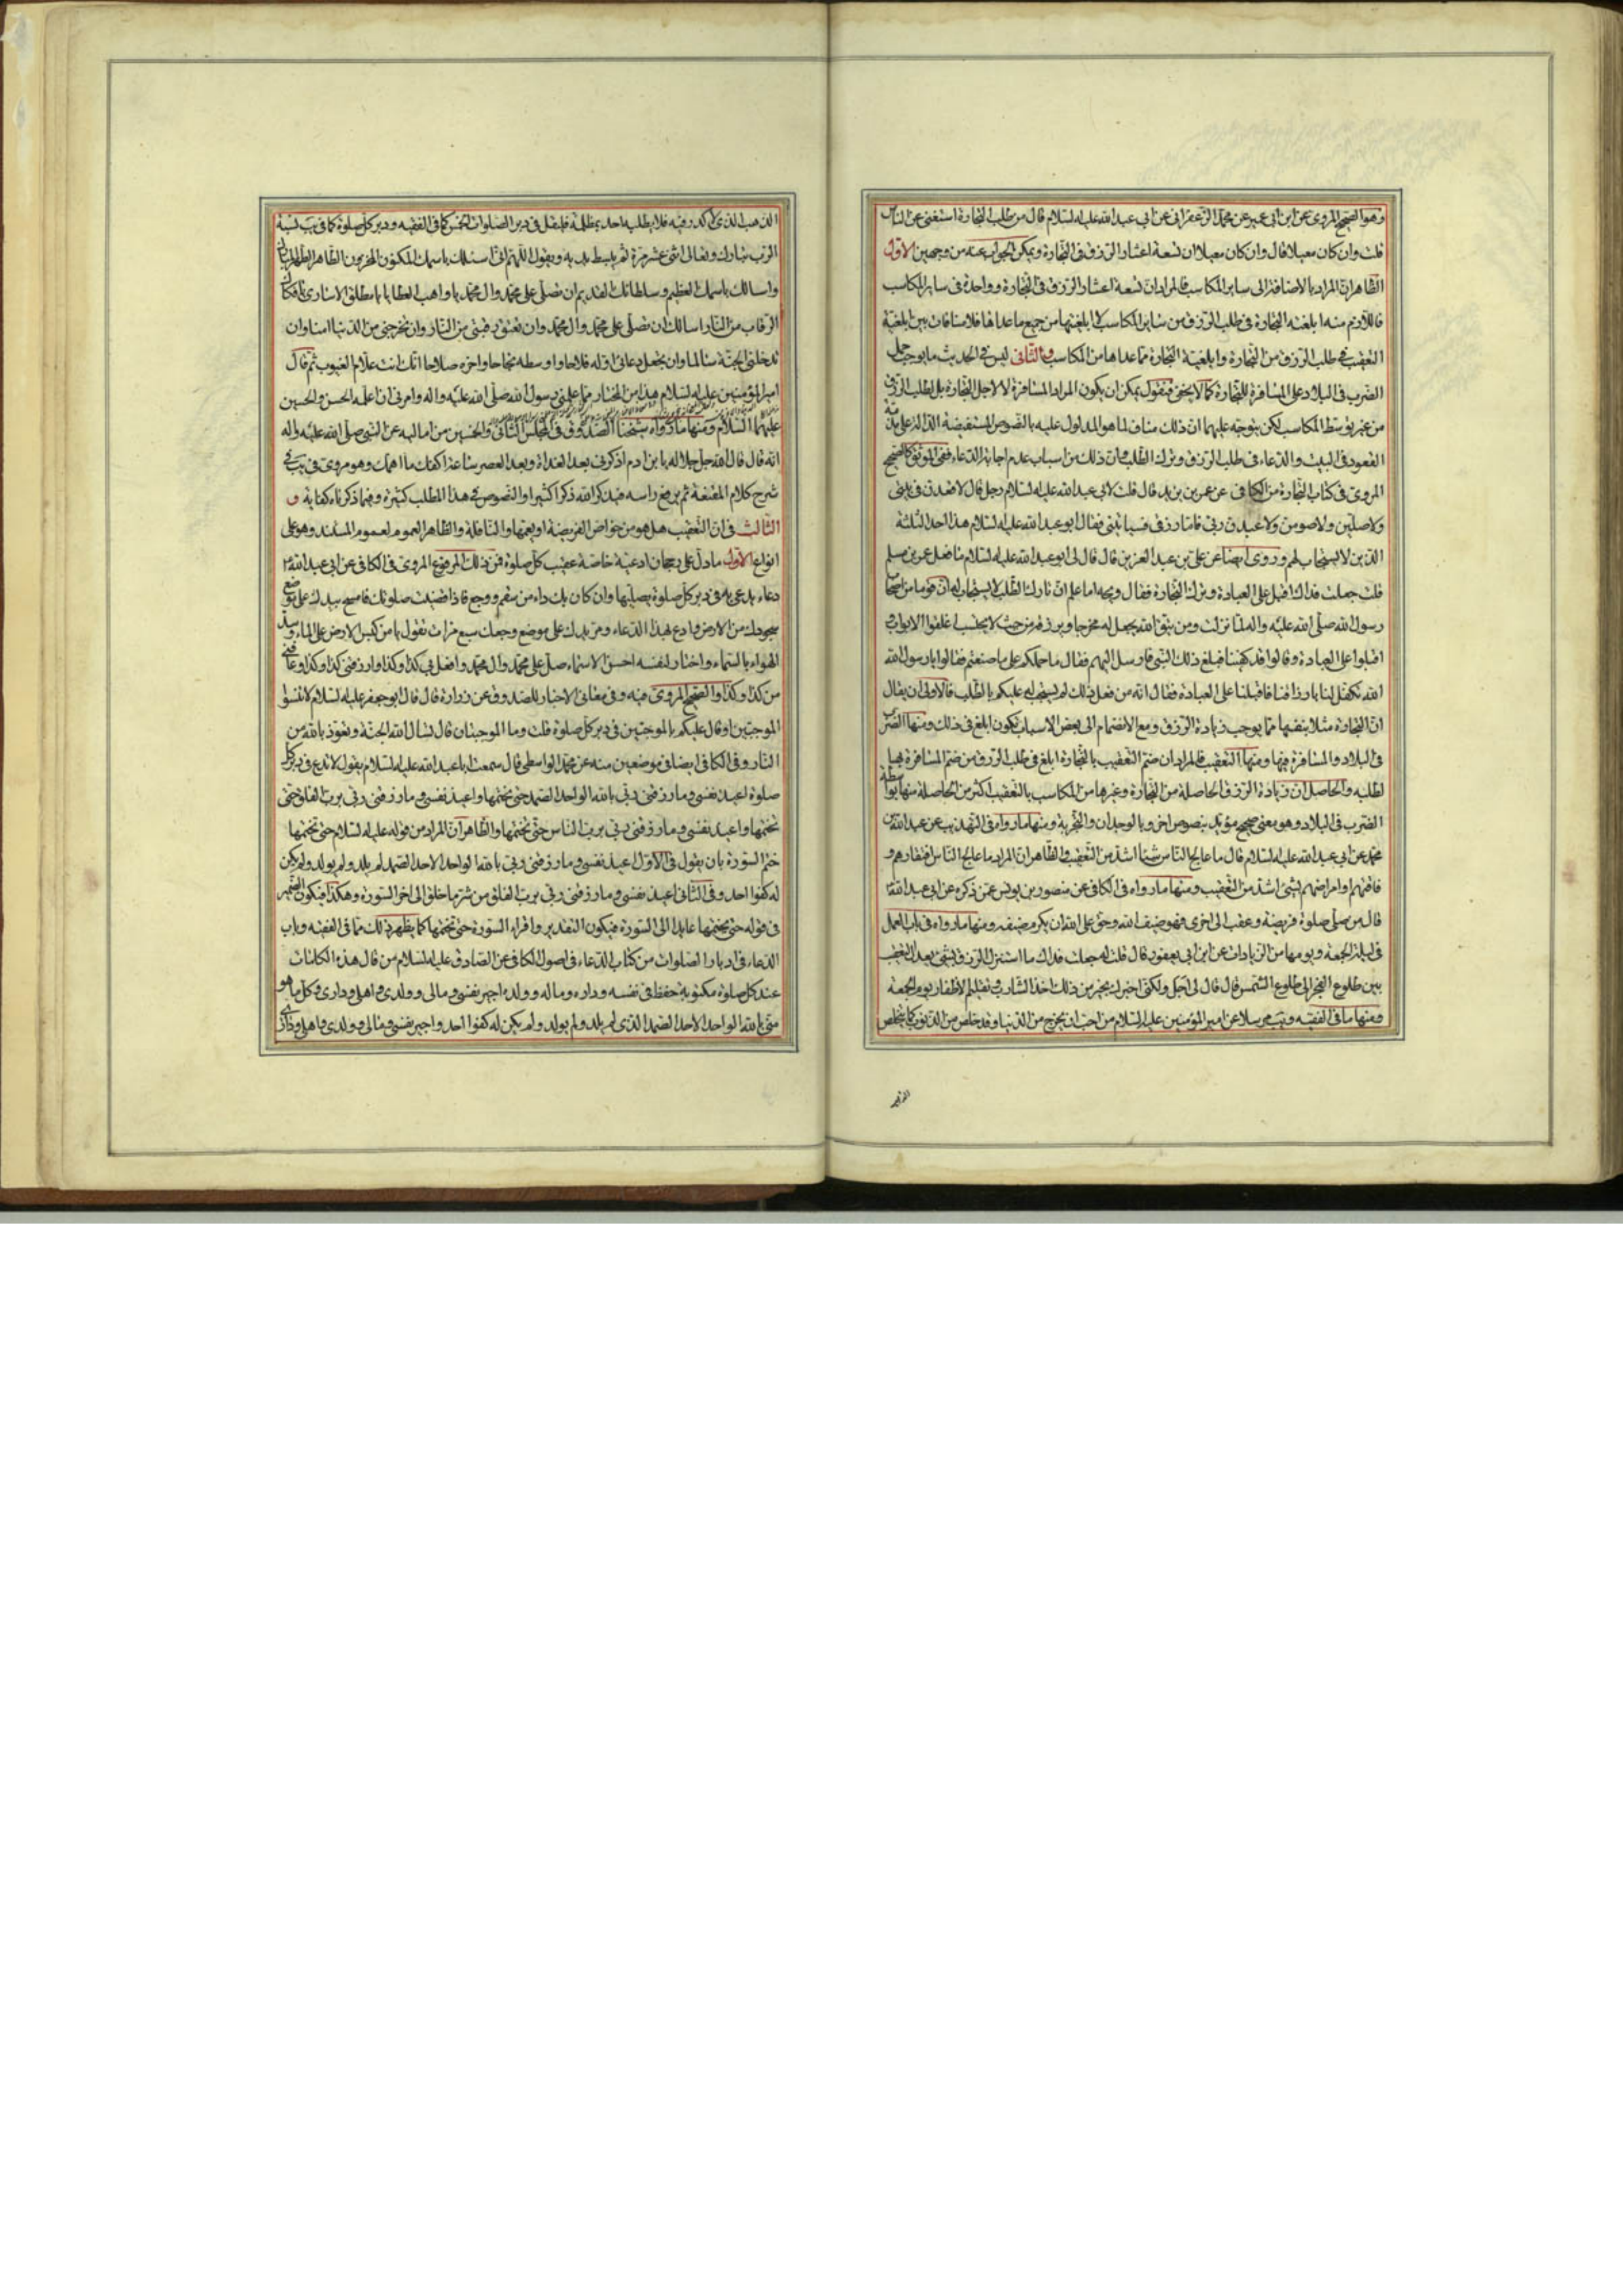 وهو الصحيح المروي عن ابن ابي عمير عن محمد الزعفراني عن ابي عبد الله عليه السلام قال من طلب التجارة استغنى عن الناس
قلت وان كان معيلا قال وان كان معيلا ان تسعة اعشار الرزق في التجارة ويمكن الجواب عنه من وجهين الاول
الظاهر ان المراد بالاضافة الى ساير المكاسب فالمراد ان تسعة اعشار الرزق في التجارة وواحدة في ساير المكاسب
فاللازم منه ابلغية التجارة في طلب الرزق من ساير المكاسب لا ابلغيتها من جميع ما عداها فلا منافات بين ابلغية
التعقيب في طلب الرزق من التجارة وابلغية التجارة مما عداها من المكاسب والثاني ليس في الحديث ما يوجب حمل
الضرب في البلاد على المسافرة للتجارة كما لا يخفى فنقول يمكن ان يكون المراد المسافرة لا لاجل التجارة بل لطلب الرزق
من غير توسط المكاسب لكن يتوجه عليهما ان ذلك مناف لما هو المدلول عليه بالنصوص المستفيضة الدالة على
القعود في البيت والدعاء في طلب الرزق وترك الطلب وان ذلك من اسباب عدم اجابة الدعاء ففي الموثق كالصحيح
المروي في كتاب التجارة من الكافي عن عمر بن يزيد قال قلت لابي عبد الله عليه السلام رجل قال لاقعدن في بيتي
ولاصلين ولاصومن ولاعبدن ربي فاما رزقي فسياتيني فقال ابو عبد الله عليه السلام هذا احد الثلثة
الذين لا يستجاب لهم وروى ايضا عن علي بن عبد العزيز قال قال لي ابو عبد الله عليه السلام ما فعل عمر بن مسلم
قلت جعلت فداك اقبل على العبادة وترك التجارة فقال ويحه اما علم ان تارك الطلب لا يستجاب له ان قوما من اصحاب
رسول الله صلى الله عليه واله لما نزلت ومن يتق الله يجعل له مخرجا ويرزقه من حيث لا يحتسب اغلقوا الابواب
اقبلوا على العبادة وقالوا قد كفينا فبلغ ذلك النبي فارسل اليهم فقال ما حملكم على ما صنعتم فقالوا يا رسول الله
الله تكفل لنا بارزاقنا فاقبلنا على العبادة فقال انه من فعل ذلك لم يستجب له عليكم بالطلب فالاولى ان يقال
ان التجارة مثلا بنفسها مما يوجب زيادة الرزق ومع الانضمام الى بعض الاسباب تكون ابلغ في ذلك ومنها الضرب
في البلاد والمسافرة فيها ومنها التعقيب فالمراد ان ضم التعقيب بالتجارة ابلغ في طلب الرزق من ضم المسافرة بها
لطلبه والحاصل ان زيادة الرزق الحاصلة من التجارة وغيرها من المكاسب بالتعقيب اكثر من الحاصلة منها بواسطة
الضرب في البلاد وهو معنى صحيح مؤيد بنصوص اخر وبالوجدان والتجربة ومنها ما رواه في التهذيب عن عبد الله بن
محمد عن ابي عبد الله عليه السلام قال ما عالج الناس شيئا اشد من التعقيب والظاهر ان المراد ما عالج الناس افتقارهم و
فاقتهم وامراضهم بشئ اشد من التعقيب ومنها ما رواه في الكافي عن منصور بن يونس عمن ذكره عن ابي عبد الله
قال من صلى صلوة فريضة وعقب الى اخرى فهو ضيف الله وحق على الله ان يكرم ضيفه ومنها ما رواه في باب العمل
في ليلة الجمعة ويومها من الزيادات عن ابن ابي يعفور قال قلت له جعلت فداك ما استنزل الرزق بشئ يعدل التعقيب
بين طلوع الفجر الى طلوع الشمس قال قال لي اجل ولكني اخبرك بخير من ذلك اخذ الشارب وتقليم الاظفار يوم الجمعة
ومنها ما في الفقيه ويب مرسلا عن امير المؤمنين عليه السلام من احب ان يخرج من الدنيا وقد خلص من الذنوب كما يتخلص
الذهب الذي لا كدر فيه فلا يطلبه احد بمظلمة فليقل في دبر الصلوات الخمس كما في الفقيه ودبر كل صلوة كما في يب نسبة
الرب تبارك وتعالى اثنى عشر مرة ثم يبسط يديه ويقول اللهم اني اسئلك باسمك المكنون المخزون الظاهر الطهر
واسالك باسمك العظيم وسلطانك القديم ان تصلي على محمد وال محمد يا واهب العطايا يا مطلق الاسارى يا فكاك
الرقاب من النار اسالك ان تصلي على محمد وال محمد وان تعتق رقبتي من النار وان تخرجني من الدنيا امنا وان
تدخلني الجنة سالما وان تجعل دعائي اوله فلاحا واوسطه نجاحا واخره صلاحا انك انت علام الغيوب ثم قال
امير المؤمنين عليه السلام هذا من المختار مما علمني رسول الله صلى الله عليه واله وامرني ان اعلمه الحسن والحسين
عليهما السلام ومنها ما رواه شيخنا الصدوق في المجلس الثاني والخمسين من اماليه عن النبي صلى الله عليه واله
انه قال قال الله جل جلاله يا بن ادم اذكرني بعد الغداة وبعد العصر ساعة اكفك ما اهمك وهو مروي في يب في
شرح كلام المقنعة ثم يرفع راسه فيذكر الله ذكرا كثيرا والنصوص في هذا المطلب كثيرة وفيما ذكرناه كفاية و
الثالث في ان التعقيب هل هو من خواص الفريضة او يعمها والنافلة والظاهر العموم لعموم المستند وهو على
انواع الاول ما دل على رجحان ادعية خاصة عقيب كل صلوة فمن ذلك المرفوع المروي في الكافي عن ابي عبد الله
دعاء يدعى به في دبر كل صلوة يصليها وان كان بك داء من سقم ووجع فاذا قضيت صلوتك فامسح بيدك على موضع
سجودك من الارض وادع بهذا الدعاء ومر يدك على موضع وجعك سبع مرات تقول يا من كبس الارض على الماء وسد
الهواء بالسماء واختار لنفسه احسن الاسماء صل على محمد وال محمد وافعل بي كذا وكذا وارزقني كذا وكذا وعافني
من كذا وكذا والصحيح المروي فيه وفي معاني الاخبار للصدوق عن زرارة قال قال ابو جعفر عليه السلام لا تنسوا
الموجبتين او قال عليكم بالموجبتين في دبر كل صلوة قلت وما الموجبتان قال تسال الله الجنة وتعوذ بالله من
النار وفي الكافي ايضا في موضعين منه عن محمد الواسطي قال سمعت ابا عبد الله عليه السلام يقول لا تدع في دبر كل
صلوة اعيذ نفسي وما رزقني ربي بالله الواحد الصمد حتى تختمها واعيذ نفسي وما رزقني ربي برب الفلق حتى
تختمها واعيذ نفسي وما رزقني ربي برب الناس حتى تختمها والظاهر ان المراد من قوله عليه السلام حتى تختمها
ختم السورة بان يقول في الاول اعيذ نفسي وما رزقني ربي بالله الواحد الاحد الصمد لم يلد ولم يولد ولم يكن
له كفوا احد وفي الثاني اعيذ نفسي وما رزقني ربي برب الفلق من شر ما خلق الى اخر السورة وهكذا فيكون الضمير
في قوله حتى تختمها عايدا الى السورة فيكون التقدير واقراء السورة حتى تختمها كما يظهر ذلك مما في الفقيه وباب
الدعاء في ادبار الصلوات من كتاب الدعاء في اصول الكافي عن الصادق عليه السلام من قال هذه الكلمات
عند كل صلوة مكتوبة حفظ في نفسه وداره وماله وولده اجير نفسي ومالي وولدي واهلي وداري وكل ما هو
مني بالله الواحد الاحد الصمد الذي لم يلد ولم يولد ولم يكن له كفوا احد واجير نفسي ومالي وولدي واهلي وداري